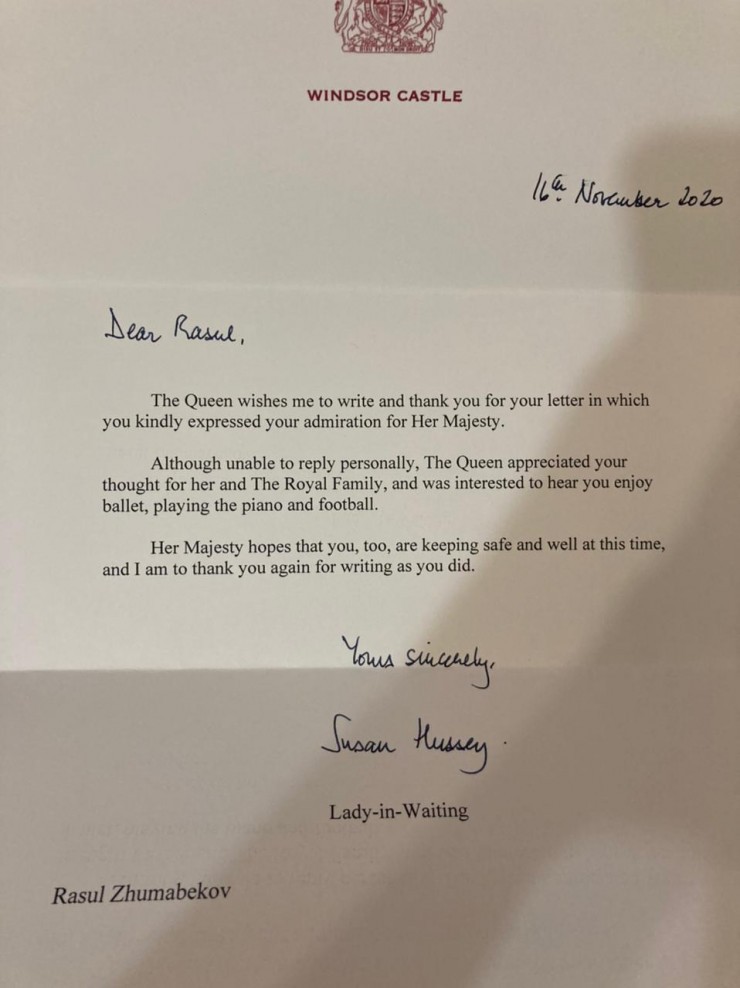 WINDSOR CASTLE
16th November 2020
Dear Rasul,
The Queen wishes me to write and thank you for your letter in which
you kindly expressed your admiration for Her Majesty.
Although unable to reply personally, The Queen appreciated your
thought for her and The Royal Family, and was interested to hear you enjoy
ballet, playing the piano and football.
Her Majesty hopes that you, too, are keeping safe and well at this time,
and I am to thank you again for writing as you did.
Yours sincerely,
Susan Hussey.
Lady-in-Waiting
Rasul Zhumabekov